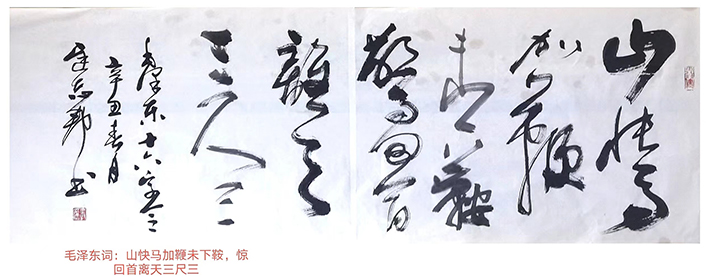 山快馬
加鞭
未下鞍
驚回首
離天
三尺三
毛澤东十六字令
辛丑春月
书
毛泽东词：山快马加鞭未下鞍，惊
回首离天三尺三